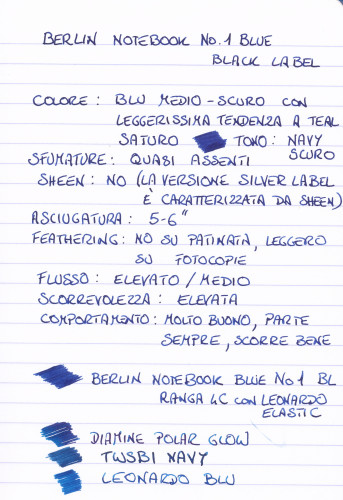 BERLIN NOTEBOOK NO.1 BLUE
BLACK LABEL
COLORE: BLU MEDIO-SCURO CON
LEGGERISSIMA TENDENZA A TEAL
SATURO TONO: NAVY
SCURO
SFUMATURE: QUASI ASSENTI
SHEEN: NO (LA VERSIONE SILVER LABEL
È CARATTERIZZATA DA SHEEN)
ASCIUGATURA: 5-6"
FEATHERING: NO SU PATINATA, LEGGERO
SU FOTOCOPIE
FLUSSO: ELEVATO/MEDIO
SCORREVOLEZZA: ELEVATA
COMPORTAMENTO: MOLTO BUONO, PARTE
SEMPRE, SCORRE BENE
BERLIN NOTEBOOK BLUE NO1 BL
RANGA 4C CON LEONARDO
ELASTIC
DIAMINE POLAR GLOW
TWSBI NAVY
LEONARDO BLU